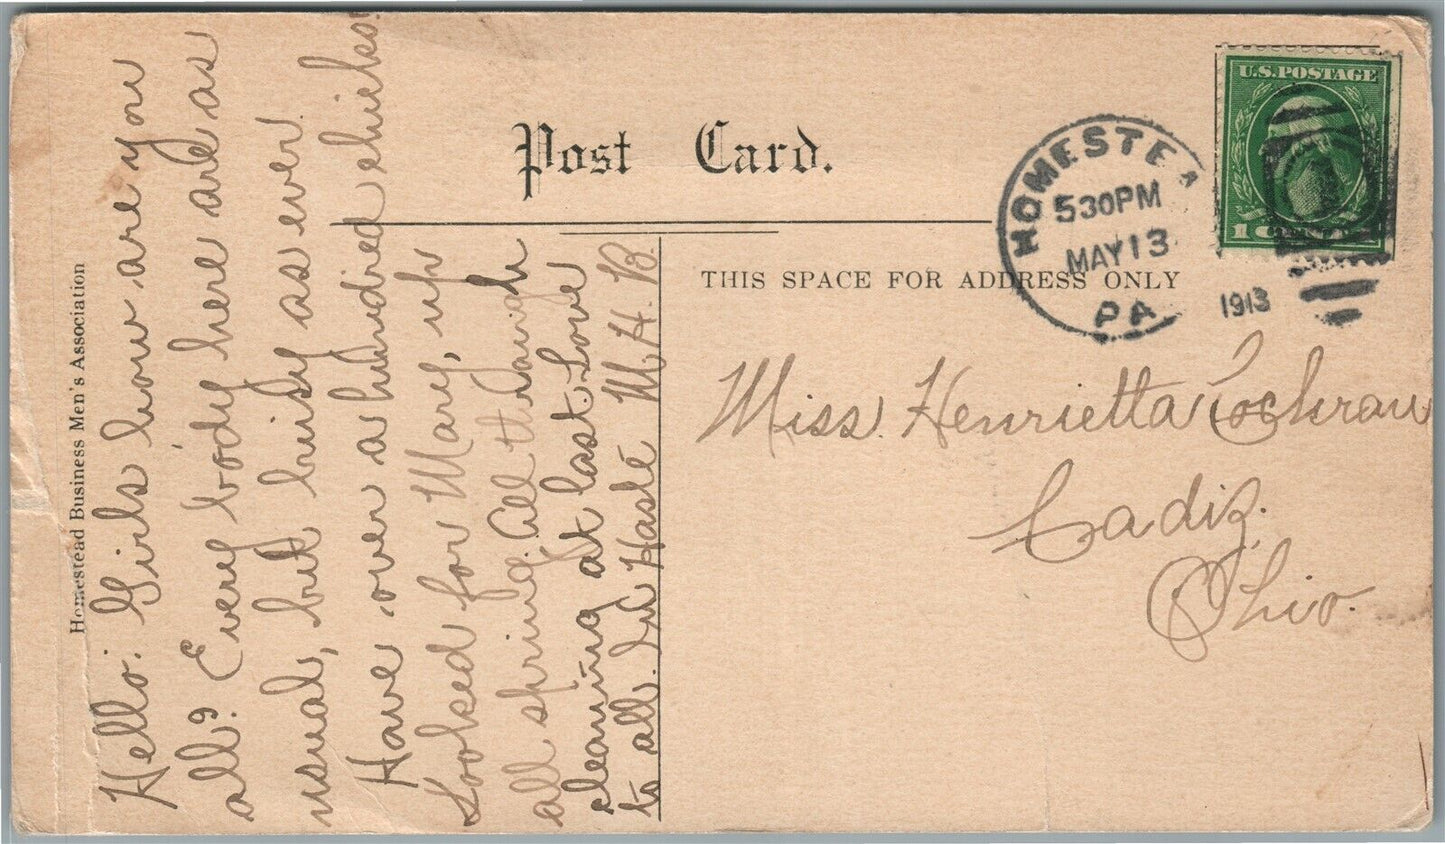 Homestead Business Men's Association
Hello. Girls how are you
all? Every body here are as
usual, but busy as ever.
Have over a hundred chicks!
Looked for Mary, up
all spring. All through
cleaning at last. Love
to all. In Haste M. H. B.
Post Card.
THIS SPACE FOR ADDRESS ONLY
HOMESTEA
530PM
MAY 13
1913
PA
U.S. POSTAGE
1 CENT
Miss. Henrietta Cochran
Cadiz.
Ohio.